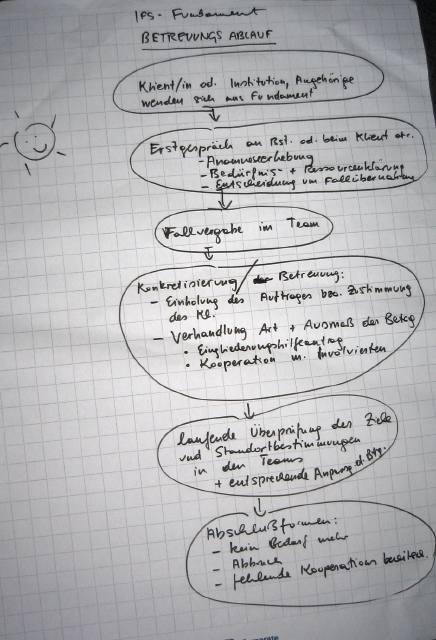 IFS - Fundament
BETREUUNGS ABLAUF
Klient/in od. Institution, Angehörige
wenden sich ans Fundament
Erstgespräch an Bst. od. beim Klient etc.
- Anamneseerhebung
- Bedürfnis + Ressourcenklärung
- Entscheidung um Fallübernahme
Fallvergabe im Team
Konkretisierung der Betreuung:
- Einholung des Auftrages bzw. Zustimmung
des Kl.
- Verhandlung Art + Ausmaß der Betrg
• Eingliederungshilfeantrag
• Kooperation m. Involvierten
laufende Überprüfung der Ziele
und Standortbestimmungen
in den Teams
+ entsprechende Anpassg d. Btg.
Abschlußformen:
- kein Bedarf mehr
- Abbruch
- fehlende Kooperations